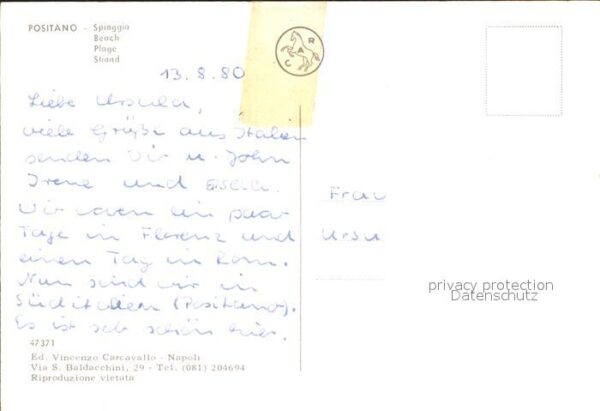 POSITANO - Spiaggia
Beach
Plage
Strand
C A R
13.8.80
Liebe Ursula,
viele Grüße aus Italien
senden Dir u. John
Irene und
Wir waren ein paar
Tage in Florenz und
einen Tag in Rom.
Nun sind wir in
Süditalien (Positano).
Es ist sehr schön hier.
Frau
Ursu
privacy protection
Datenschutz
47371
Ed. Vincenzo Carcavallo - Napoli
Via S. Baldacchini, 29 - Tel. (081) 204694
Riproduzione vietata